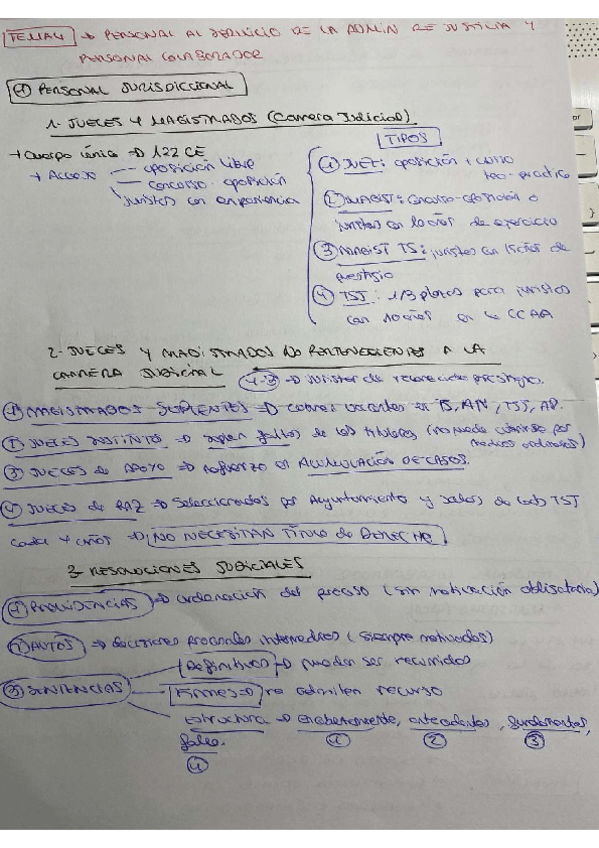 TEMA 4 → PERSONAL AL SERVICIO DE LA ADMIN DE JUSTICIA Y
PERSONAL COLABORADOR
① PERSONAL JURISDICCIONAL
1- JUECES Y MAGISTRADOS (Carrera Judicial)
→ Cuerpo único → 122 CE
→ Acceso — oposición libre
— concurso-oposición
juristas con experiencia
TIPOS
① JUEZ: oposición + curso
teo-práctico
② MAGIST: concurso-oposición o
juristas con 10 años de ejercicio
③ MAGIST TS: juristas con 15 años de
prestigio
④ TSJ: 1/3 plazas para juristas
con 10 años en la CCAA
2- JUECES Y MAGISTRADOS NO PERTENECIENTES A LA
CARRERA JUDICIAL → juristas de reconocido prestigio.
① MAGISTRADOS SUPLENTES → cubren vacantes en TS, AN, TSJ, AP.
② JUECES SUSTITUTOS → suplen faltas de los titulares (no puede cubrirse por
medios ordinarios)
③ JUECES de APOYO → refuerzo en ACUMULACIÓN DE CASOS.
④ JUECES de PAZ → Seleccionados por Ayuntamiento y salas de los TSJ
cada 4 años → NO NECESITAN TÍTULO de DERECHO
3- RESOLUCIONES JUDICIALES
① PROVIDENCIAS → ordenación del proceso (sin motivación obligatoria)
② AUTOS → decisiones procesales intermedias (siempre motivados)
③ SENTENCIAS — Definitivas → pueden ser recurridas
Firmes → no admiten recurso
Estructura → Encabezamiento, antecedentes, fundamentos,
fallo. ① ② ③
④